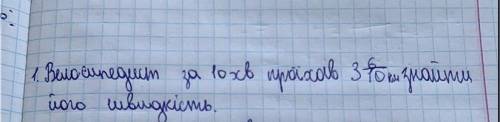 1. Велосипедист за 10 хв проїхав 3 6/10 км знайти
його швидкість.